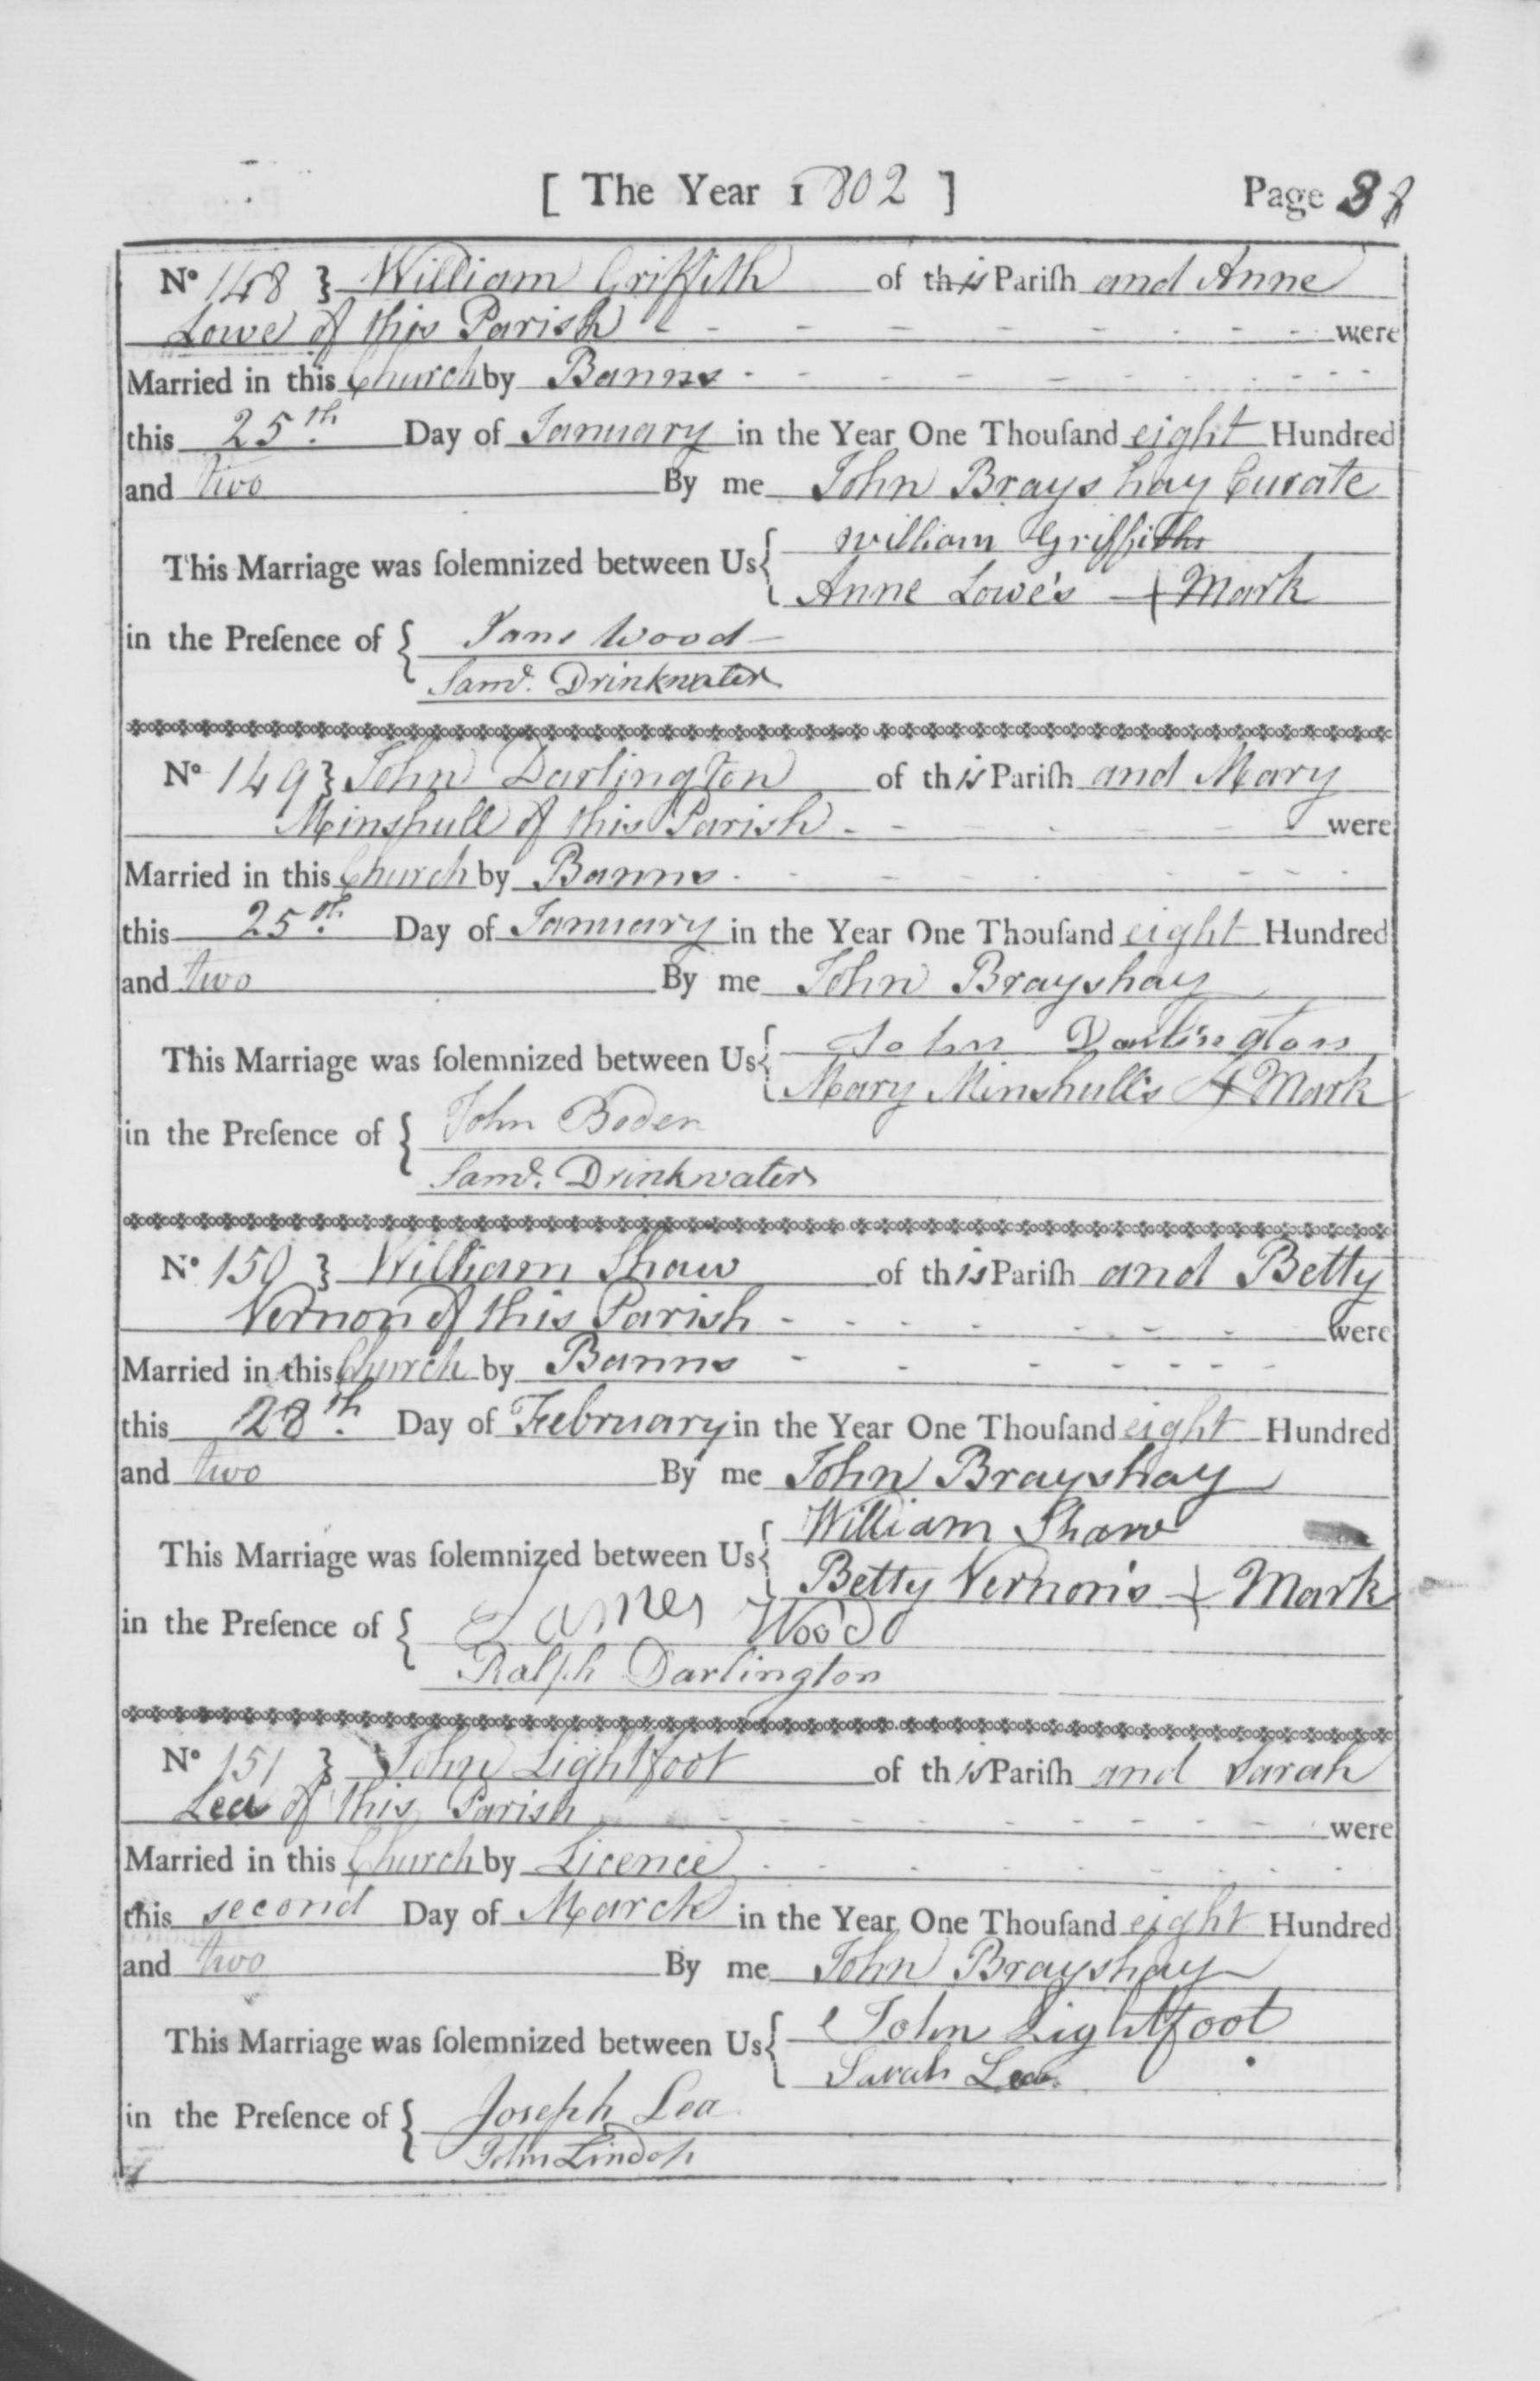 [ The Year 1802 ] Page 38
No 148 } William Griffith of this Parish and Anne
Lowe of this Parish - - - - - - - - were
Married in this Church by Banns - - - - - - - -
this 25th. Day of January in the Year One Thousand eight Hundred
and two By me John Brayshay Curate
This Marriage was solemnized between Us { William Griffiths
Anne Lowe's + Mark
in the Presence of { Wood
Saml. Drinkwater
No 149 } John Darlington of this Parish and Mary
Minshull of this Parish - - - - - - were
Married in this Church by Banns - - - - - - - -
this 25th. Day of January in the Year One Thousand eight Hundred
and two By me John Brayshay
This Marriage was solemnized between Us { John Darlington
Mary Minshull's + Mark
in the Presence of { John Boden
Saml. Drinkwater
No 150 } William Shaw of this Parish and Betty
Vernon of this Parish - - - - - - - were
Married in this Church by Banns - - - - - - -
this 28th. Day of February in the Year One Thousand eight Hundred
and two By me John Brayshay
This Marriage was solemnized between Us { William Shaw
Betty Vernon's + Mark
in the Presence of { James Wood
Ralph Darlington
No 151 } John Lightfoot of this Parish and Sarah
Lea of this Parish - - - - - - - were
Married in this Church by Licence - - - - - - -
this second Day of March in the Year One Thousand eight Hundred
and two By me John Brayshay
This Marriage was solemnized between Us { John Lightfoot
Sarah Lea
in the Presence of { Joseph Lea
John Lindop